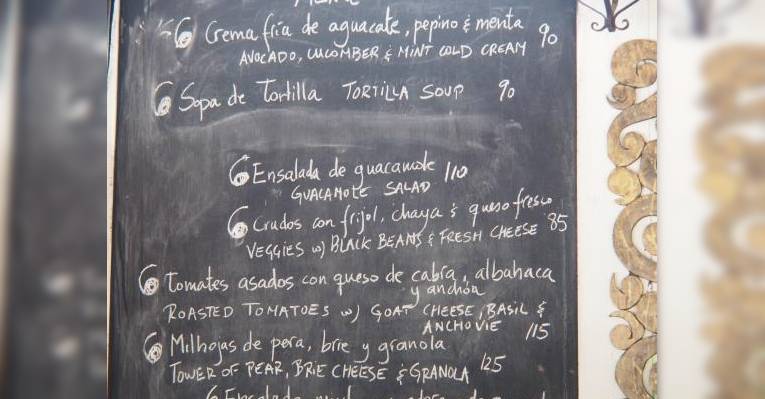 Crema fría de aguacate, pepino & menta 90
AVOCADO, CUCOMBER & MINT COLD CREAM
Sopa de Tortilla TORTILLA SOUP 90
Ensalada de guacamole 110
GUACAMOLE SALAD
Crudos con frijol, chaya & queso fresco
VEGGIES w/ BLACK BEANS & FRESH CHEESE 85
Tomates asados con queso de cabra, albahaca
y anchoa
ROASTED TOMATOES w/ GOAT CHEESE, BASIL &
ANCHOVIE 115
Milhojas de pera, brie y granola
TOWER OF PEAR, BRIE CHEESE & GRANOLA 125
Ensalada